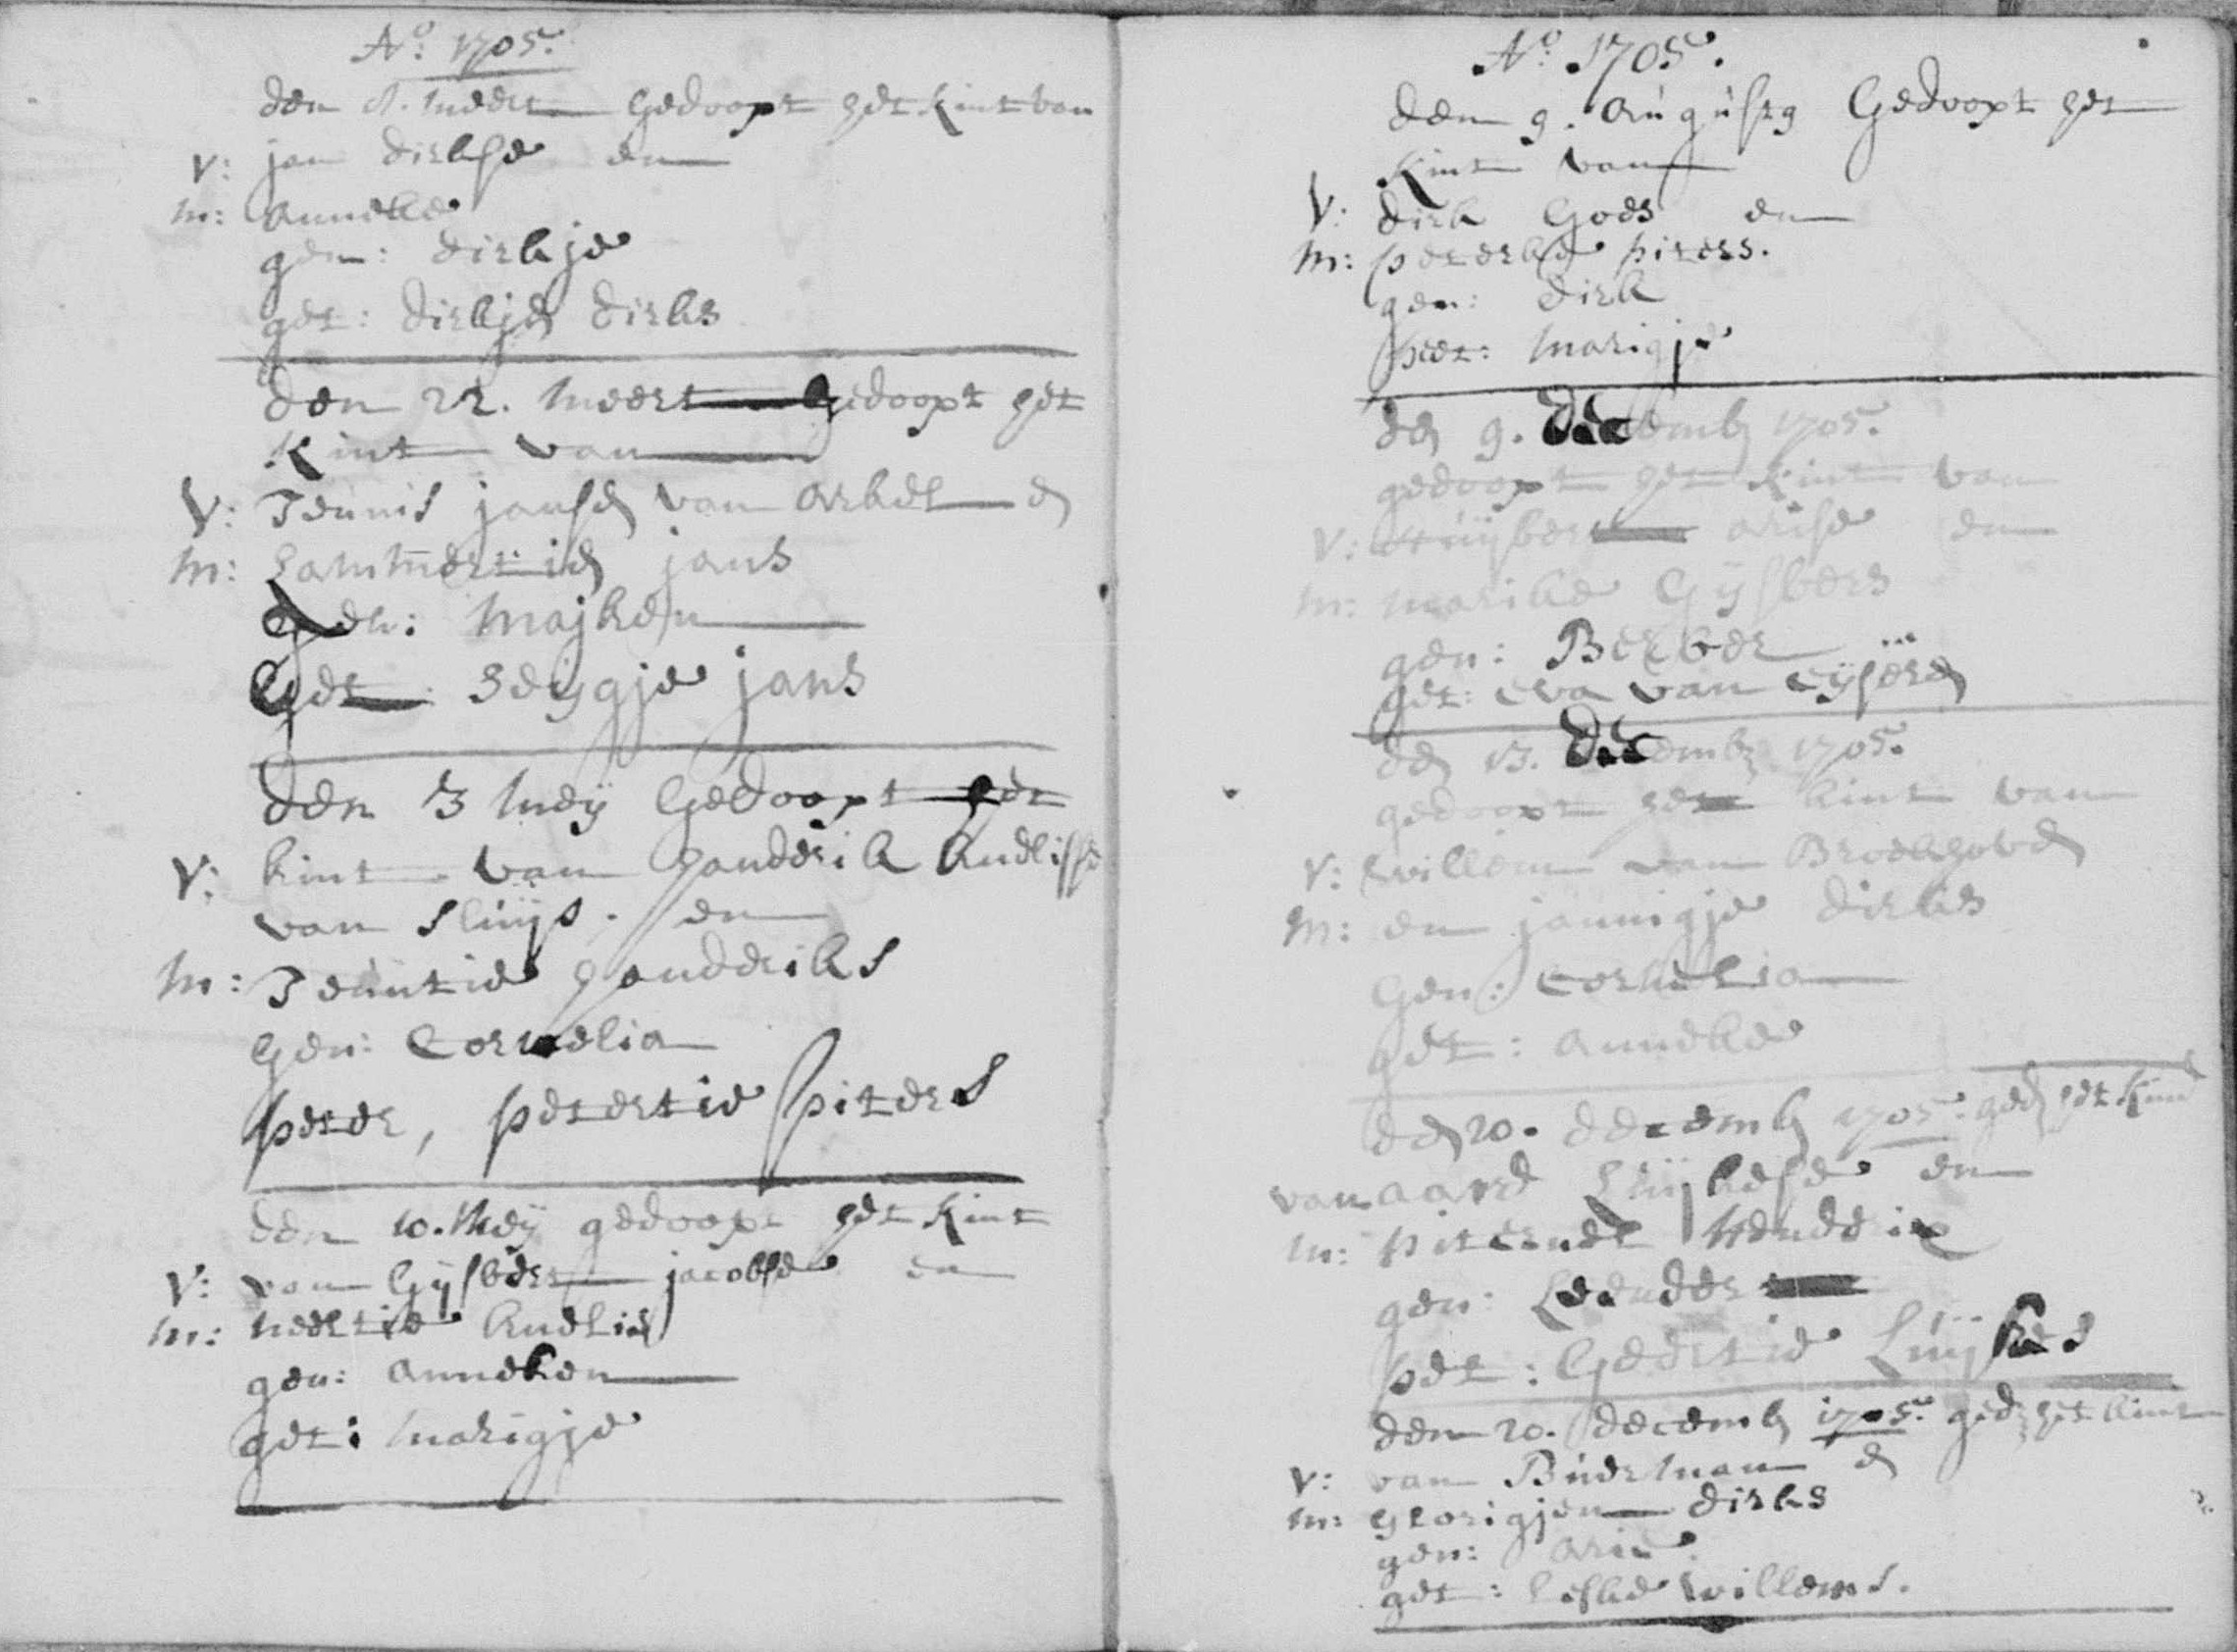 Ao: 1705.
den 1. meert Gedoopt het kint van
V: jan dirkse en
M: anneke
gen: dirkje
get: dirkje dirks
den 22. meert Gedoopt het
kint van
V: Teunis janse van arkel en
M: Lammertie jans
Gen: Majken
Get: Seygje jans
den 3 meij Gedoopt het
V: kint van handerik knelisse
van Sluijs. en
M: Teuntie handeriks
Gen: Cornelia
peter, petertie piters
den 10. Meij gedoopt het kint
V: van Gijsbert jacobse en
M: neeltie knelis
gen: anneken
get: marigje
Ao 1705.
den 9. augusty Gedoopt het
kint van
V: dirk Goes en
M: peterke piters.
gen: dirk
pet: marigje
den 9. decemb 1705.
gedoopt het kint van
V: Huijbert arise en
M: marike Gijsbers
gen: Berber
get: eva van eijseren
den 13. decemb 1705.
gedoopt het kint van
V: willem van Broekhoven
M: en jannigje dirks
Gen: Cornelia
get: anneke
den 20. decemb 1705. ged het kind
van aard Luijkese en
M: piternel Henderix
gen: Leendert
pet: Geertie Luijkes
den 20. decemb 1705. ged het kint
V: van Buerman en
M: glorigjen dirks
gen: arie
get: Lefke willems.